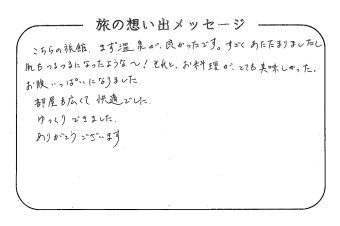 旅の想い出メッセージ
こちらの旅館、まず温泉が、良かったです。すごくあたたまりましたし
肌もつるつるになったような〜！それと、お料理が、とても美味しかった。
お腹いっぱいになりました。
部屋も広くて快適でした。
ゆっくりできました。
ありがとうございます